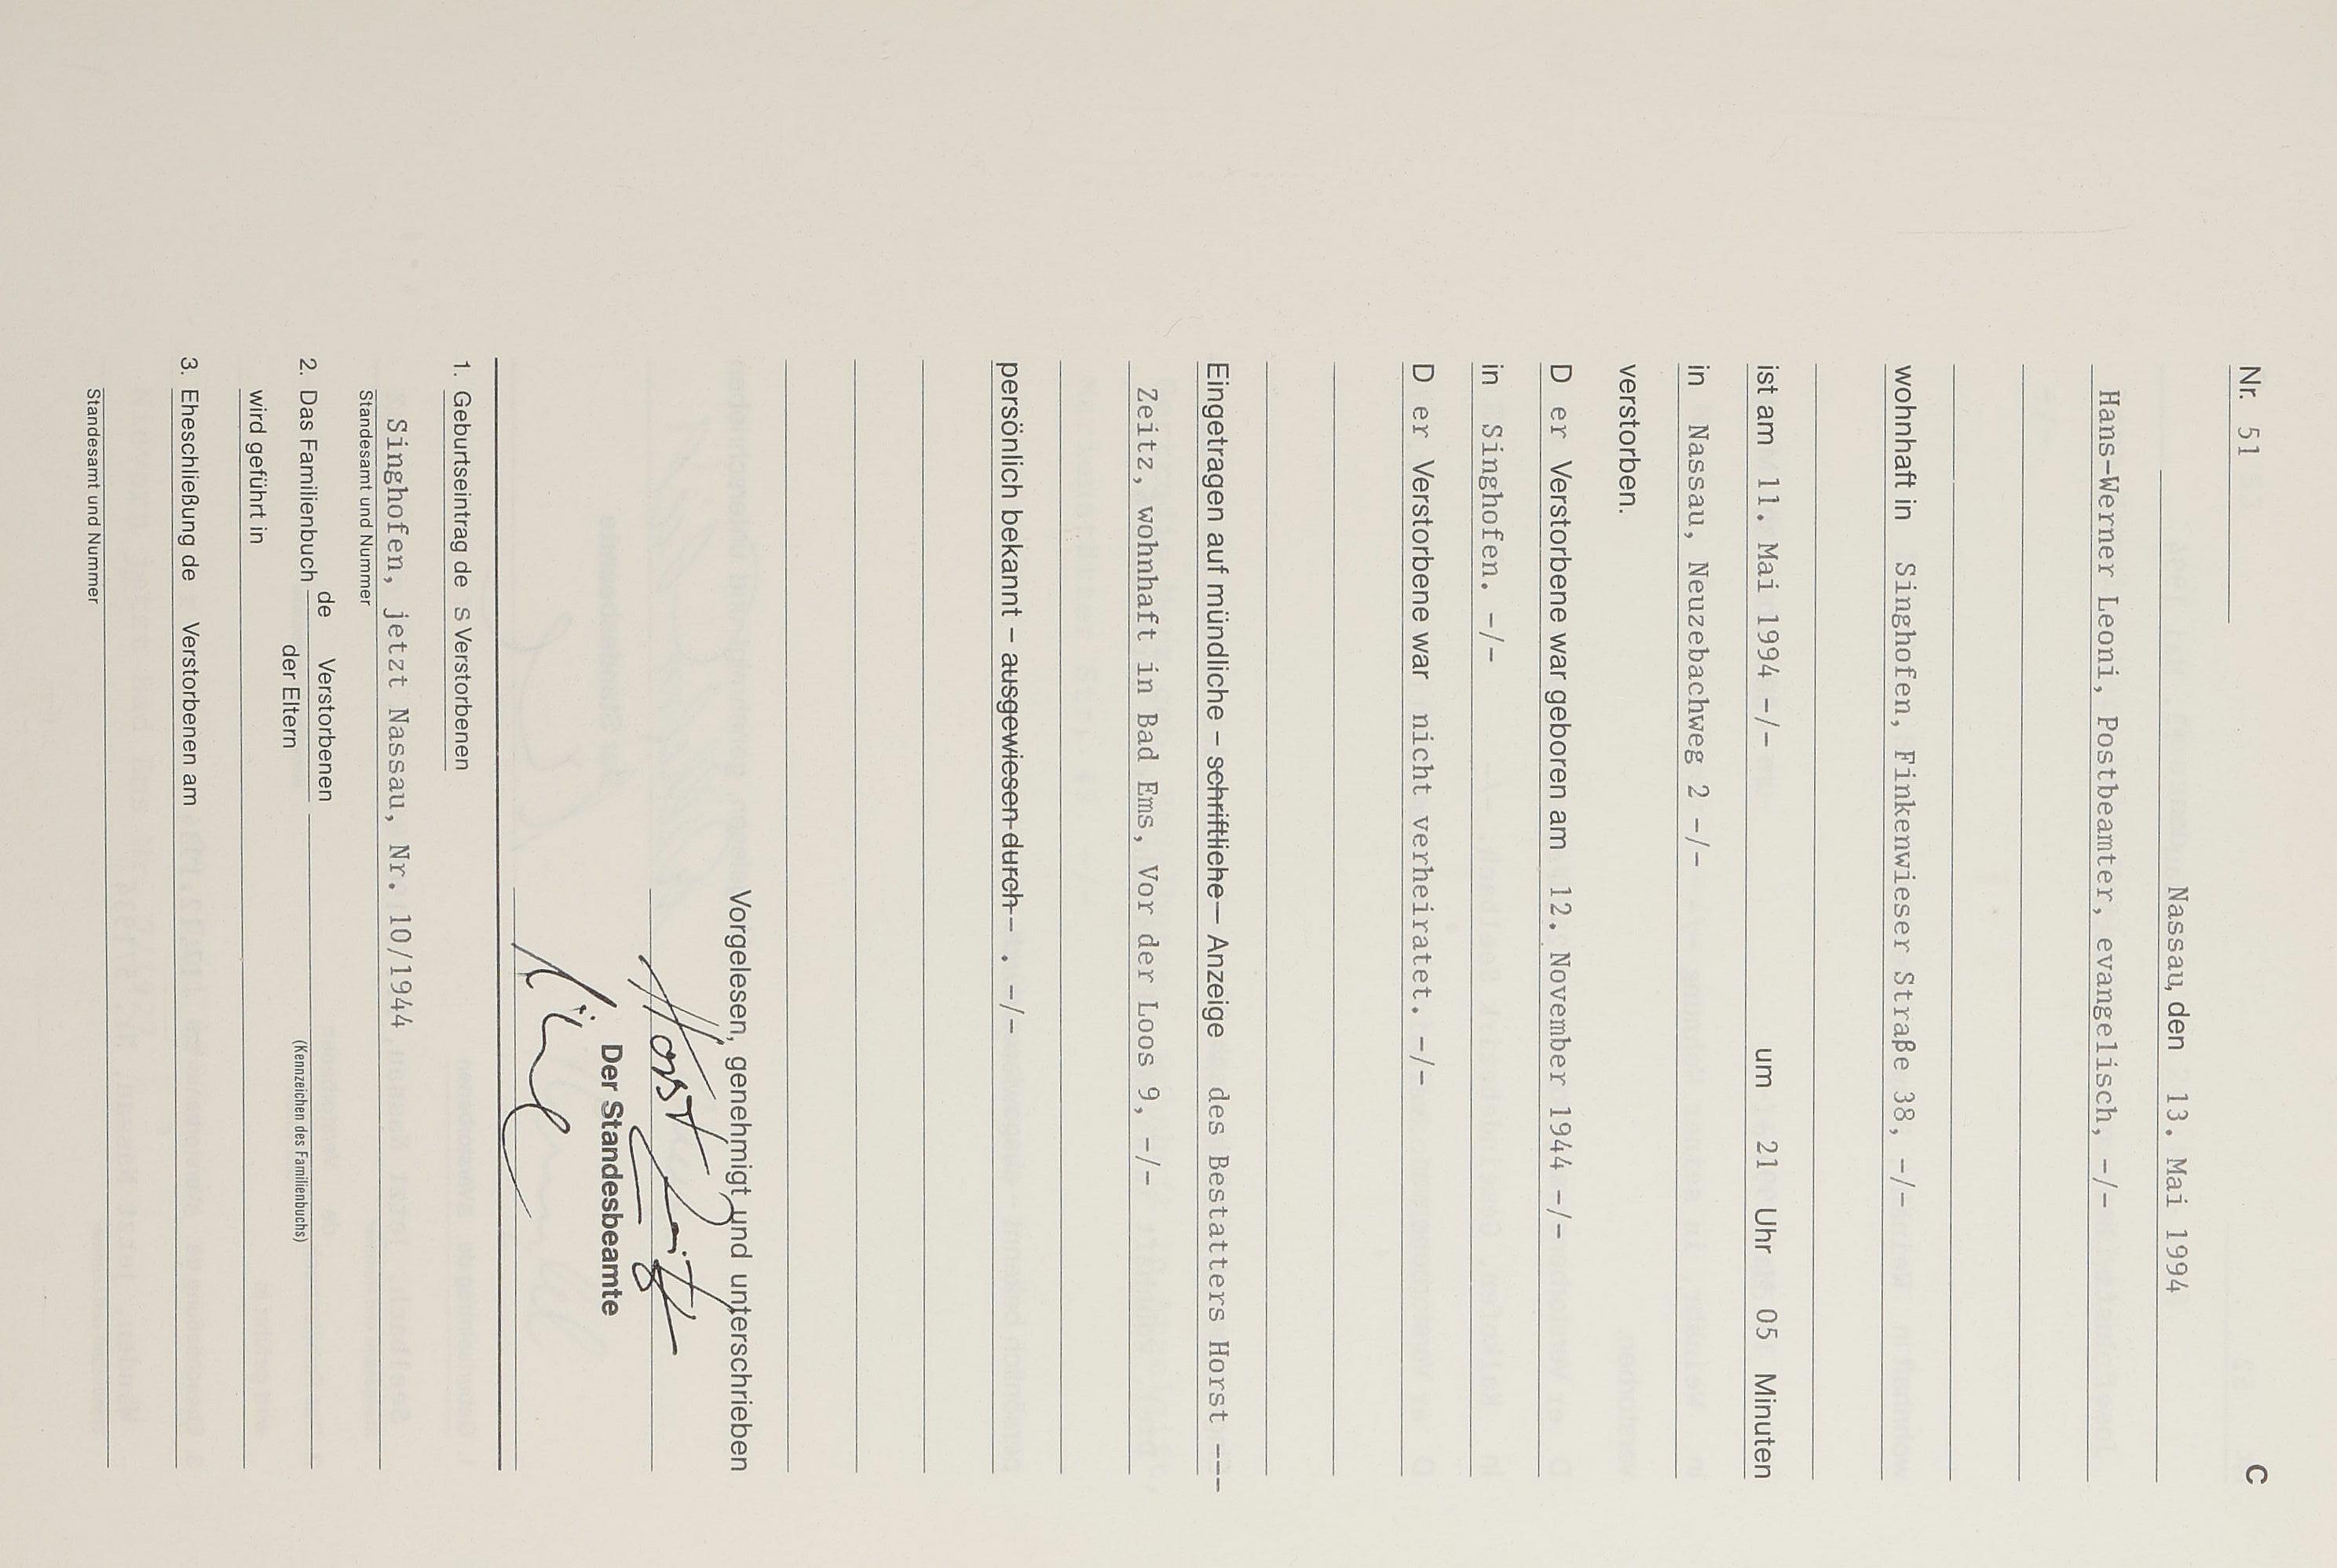 Nr. 51
C
Nassau, den 13. Mai 1994
Hans-Werner Leoni, Postbeamter, evangelisch, -/-
wohnhaft in Singhofen, Finkenwieser Straße 38, -/-
ist am 11. Mai 1994 -/- um 21 Uhr 05 Minuten
in Nassau, Neuzebachweg 2 -/-
verstorben.
D er Verstorbene war geboren am 12. November 1944 -/-
in Singhofen. -/-
D er Verstorbene war nicht verheiratet. -/-
Eingetragen auf mündliche – schriftliche – Anzeige des Bestatters Horst ---
Zeitz, wohnhaft in Bad Ems, Vor der Loos 9, -/-
persönlich bekannt – ausgewiesen durch – . -/-
Vorgelesen, genehmigt und unterschrieben
Horst Zeitz
Der Standesbeamte
1. Geburtseintrag de s Verstorbenen
Singhofen, jetzt Nassau, Nr. 10/1944
Standesamt und Nummer
2. Das Familienbuch de Verstorbenen
der Eltern
(Kennzeichen des Familienbuchs)
wird geführt in
3. Eheschließung de Verstorbenen am
Standesamt und Nummer